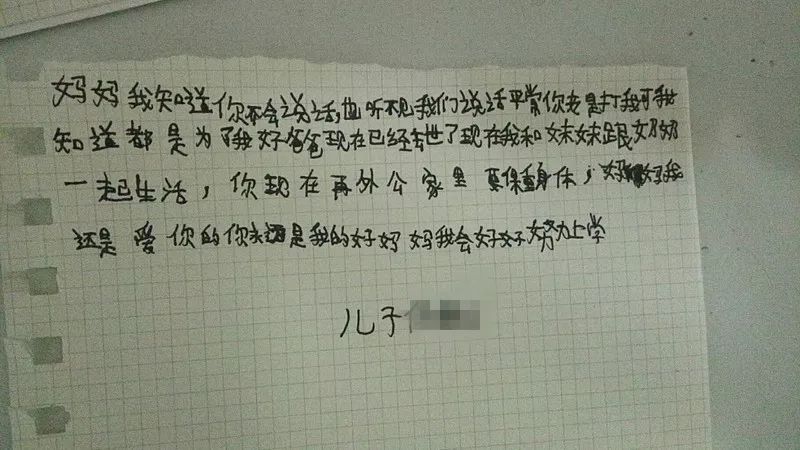 妈妈我知道你不会说话,也听不见我们说话平常你老是打我可我
知道都是为了我好爸爸现在已经去世了现在我和妹妹跟奶奶
一起生活,你现在再外公家里要保重身体,妈妈我
还是爱你的你永远是我的好妈妈我会好好努力上学
儿子